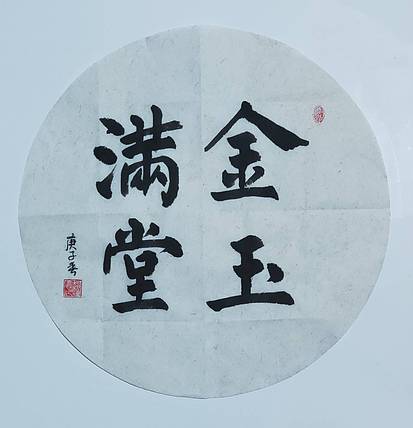 金玉
满堂
庚子春